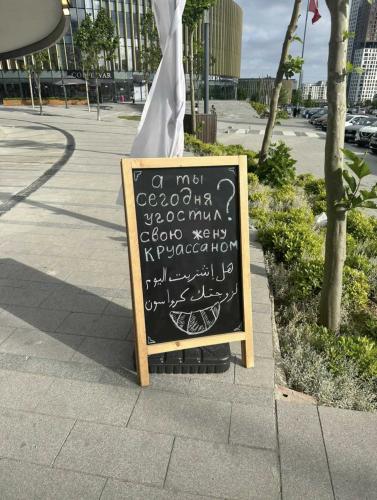 а ты
сегодня
угостил ?
свою жену
круассаном
هل إشتريت اليوم
لزوجتك كرواسون